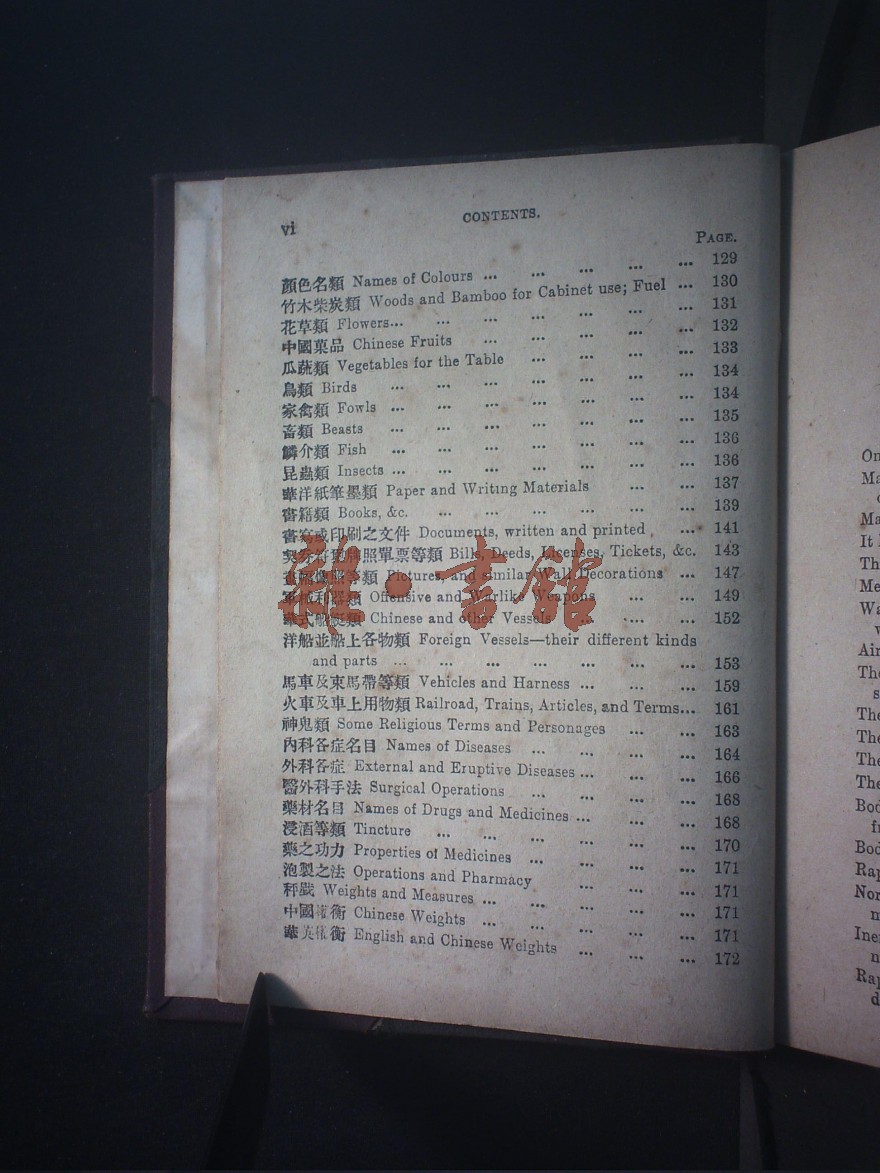 vi
CONTENTS.
PAGE.
顏色名類 Names of Colours ... ... ... ... ... 129
竹木柴炭類 Woods and Bamboo for Cabinet use; Fuel ... 130
花草類 Flowers... ... ... ... ... ... ... 131
中國菓品 Chinese Fruits ... ... ... ... ... 132
瓜蔬類 Vegetables for the Table ... ... ... ... 133
鳥類 Birds ... ... ... ... ... ... ... 134
家禽類 Fowls ... ... ... ... ... ... ... 134
畜類 Beasts ... ... ... ... ... ... ... 135
鱗介類 Fish ... ... ... ... ... ... ... 136
昆蟲類 Insects ... ... ... ... ... ... ... 136
華洋紙筆墨類 Paper and Writing Materials ... ... ... 137
書籍類 Books, &c. ... ... ... ... ... ... 139
書寫或印刷之文件 Documents, written and printed ... 141
契券 照單票等類 Bills, Deeds, Licenses, Tickets, &c. 143
像照等類 Pictures and similar Wall Decorations ... 147
軍械利器類 Offensive and Warlike Weapons ... ... 149
華式船艇類 Chinese and other Vessels ... ... ... 152
洋船並船上各物類 Foreign Vessels—their different kinds
and parts ... ... ... ... ... ... ... 153
馬車及束馬帶等類 Vehicles and Harness ... ... ... 159
火車及車上用物類 Railroad, Trains, Articles, and Terms... 161
神鬼類 Some Religious Terms and Personages ... ... 163
內科各症名目 Names of Diseases ... ... ... ... 164
外科各症 External and Eruptive Diseases ... ... ... 166
醫外科手法 Surgical Operations ... ... ... ... 168
藥材名目 Names of Drugs and Medicines ... ... ... 168
浸酒等類 Tincture ... ... ... ... ... ... 170
藥之功力 Properties of Medicines ... ... ... ... 171
泡製之法 Operations and Pharmacy ... ... ... 171
秤戥 Weights and Measures ... ... ... ... ... 171
中國權衡 Chinese Weights ... ... ... ... ... 171
華英權衡 English and Chinese Weights ... ... ... 172
雜·書館
On
Ma
Ma
It
Th
Me
Wa
w
Air
The
s
The
The
The
The
Bod
fr
Bod
Rap
Nor
m
Iner
n
Rap
d